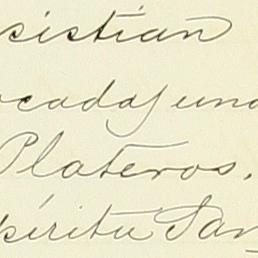 sistian
ocadas una
Plateros.
spiritu San